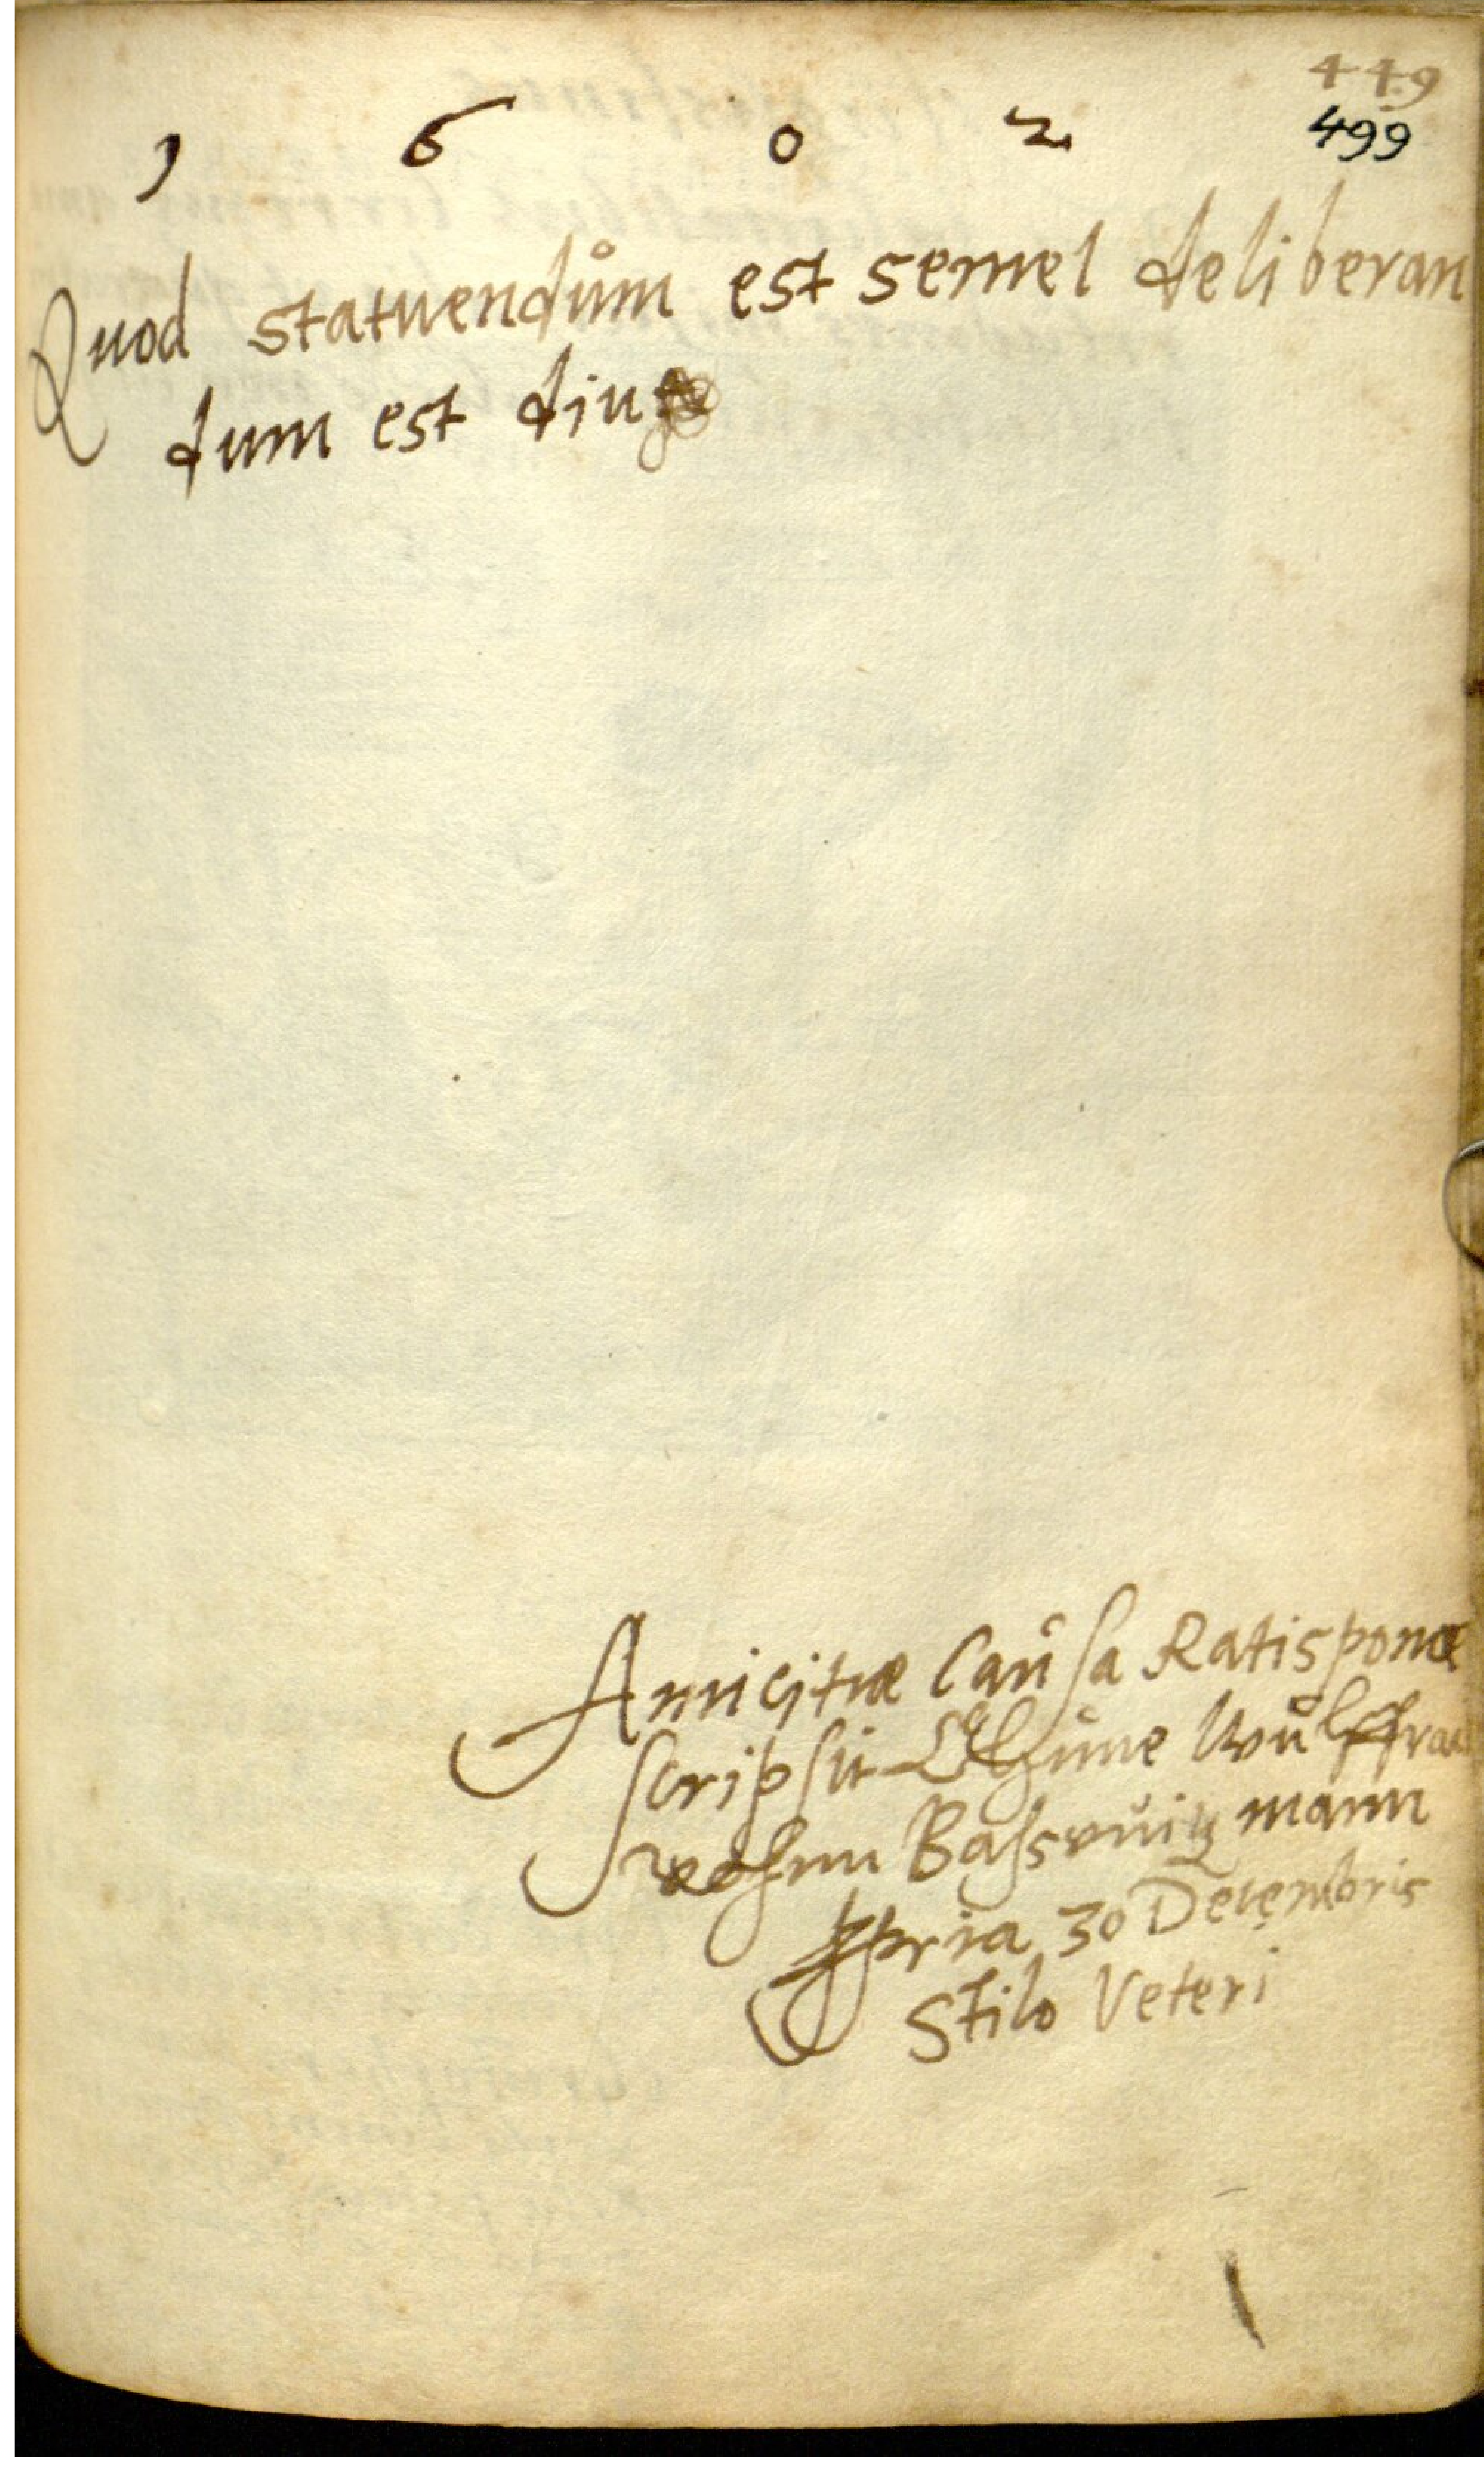 449
1 6 0 2 499
Quod statuendům est semel deliberan
dum est diu
Amicitiæ Caůsa Ratisponæ
scripsit
Baſsvuitz mann
ppria 30 Decembris
Stilo Veteri